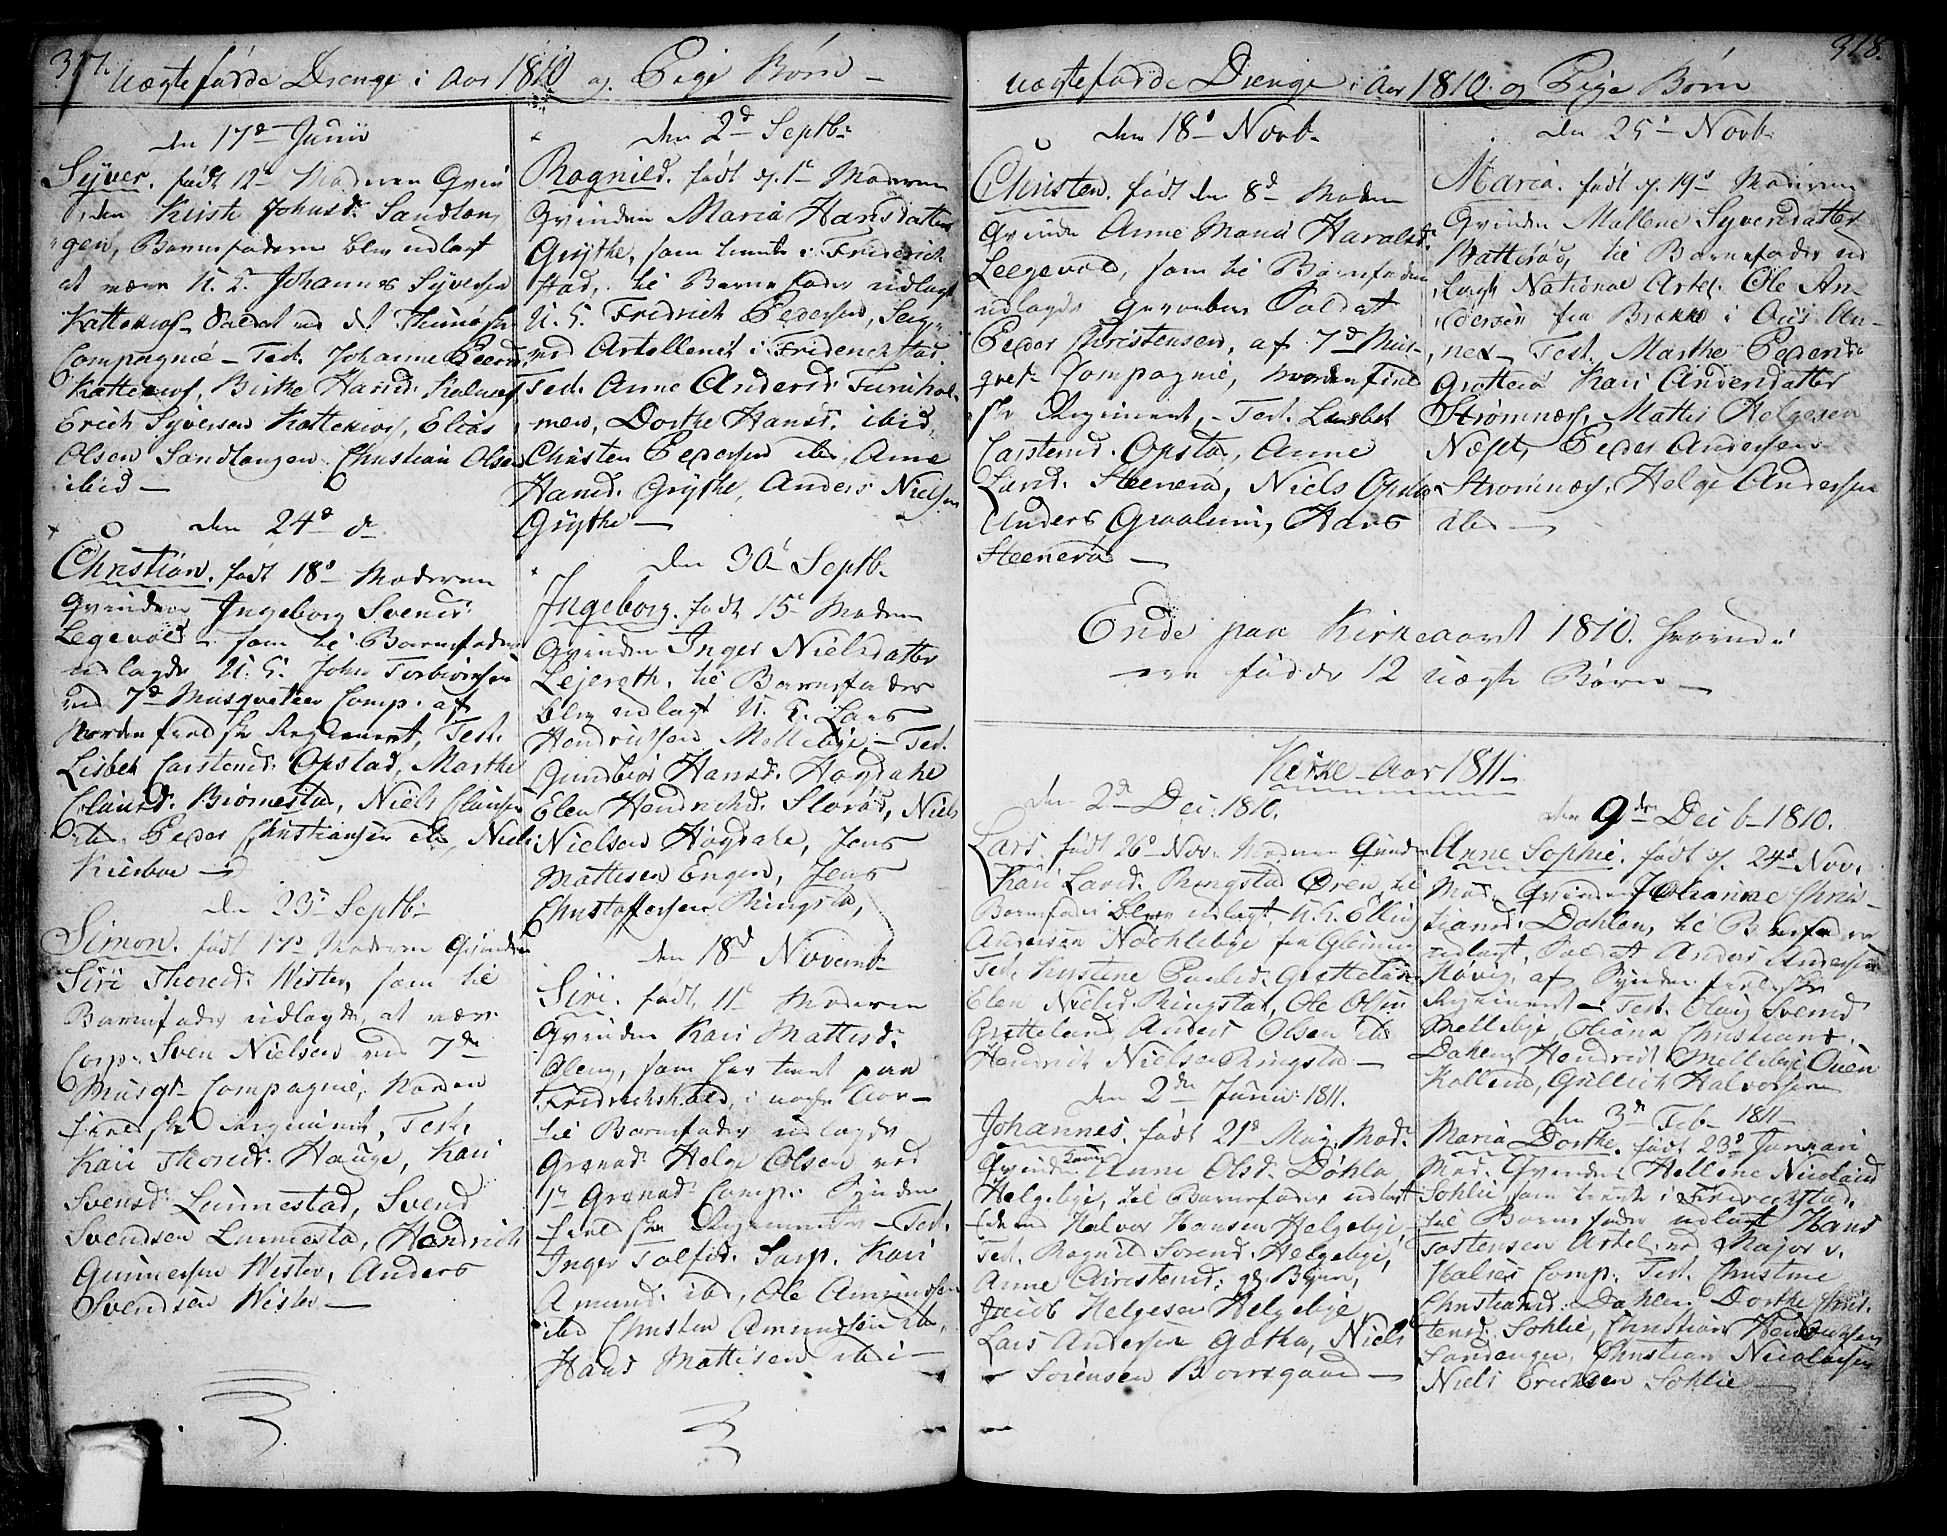 317.
Uægte fødde Drenge i Aar 1810 og Pige Børn
den 17d Junii
Syver. født 12d Moderen Qvin
den Kirsti Johnsd. Sandtan
gen, Barnefaderen blev udlagt
at være U. C. Johannes Syversen
Kattekios Soldat ved d.
Compagnie – Test. Johanne Peersd.
Kattekios, Birthe Hansd.
Erich Syversen Kattekios, Elias
Olsen Sandtangen Christian Olsen
ibid —
den 24d do
Christian. født 18d Moderen
Qvinden Ingeborg Svensd.
Legevold som til Barnefader
udlagde U. C. John Torbiørnsen
ved 7d Musqueteer Comp. af
Nordenfieldske Regiment, Test.
Lisbeth Carstensd. Opstad, Marthe
Clausd. Biørnestad, Niels Clausen
ibd. Peder Christiansen ibd, Niels
Kiersboe —
den 23d Septb:
Simon. født 17d Moderen Qvinden
Siri Thoresd. Wister, som til
Barnefader udlagde, at være
Corp. Sven Nielsen ved 7de
Musqt. Compagnie, Norden
fieldske Regiment, Test.
Kari Thoresd. Hauge, Kari
Svensd. Lunnestad, Svend
Svendsen Lunnestad, Hendrich
Gunnersen Wister, Anders
Svendsen Wister —
den 2d Septb:
Ragnild. født d. 1d Moderen
Qvinden Maria Hansdatter
Grythe, som tiente i Friderich
stad, til Barnefader udlagt
U. C. Fridrich Pedersen,
ved Artelleriet i Friderichstad.
Test. Anne Andersd. Furuhol-
men, Dorthe Hansd. ibid,
Christen Pedersen ibd, Anne
Hansd. Grythe, Anders Nielsen
Grythe —
den 30d Septb.
Ingeborg. født 15d Moderen
Qvinden Inger Nielsdatter
Lejereth, til Barnefader
blev udlagt U. C. Lars
Hendrichsen Mellebye – Test.
Gundbior Hansd. Høydahl
Elen Hendrichsd. Storød, Niels
Nielsen Høydahl, Jens
Mattisen Engen, Jens
Christoffersen Ringstad,
den 18d Novemb.
Siri. født 11d Moderen
Qvinden Kari Mattisd.
Oleng, som har tient paa
Fridrichshald, i Aar –
til Barnefader udlagde
Grenad. Helge Olsen ved
1st Grenad. Comp. Synden
fieldske Regimenter – Test.
Inger Tolfsd. Sarp. Kari
Amund. ibd, Ole Amundsen
ibd Christen Amundsen ibd,
Hans Mattisen ibd —
318.
Uægte fødde Drenge i Aar 1810 og Pige Børn
den 18d Novb.
Christen. født den 8d Moderen
Qvinde Anne Maria Haralsd.
Leegevold, som til Barnefader
udlagde Soldat
Peder Christensen, af 7d Mus-
qvet. Compagnie, Nordenfield
ske Regiment, – Test. Lisbet
Carstensd. Opstad, Anne
Larsd. Steenerød, Niels Opstad
Anders Graalum, Hans
Steenerød —
den 25d Novb.
Maria. født d. 19d Moderen
Qvinden Mallene Syversdatter
Katterød, til Barnefader ud
lagt National Artel. Ole An-
dersen fra Brekke i Ous An-
nex – Test. Marthe Pedersd.
Grotterød Kari Andersdatter
Strømnæs, Mattis Helgesen
Næset, Peder Andersen
Strømnæs, Helge Andersen
ibd —
Ende paa Kirkeaaret 1810. hvorudi
ere fødde 12 uægte Børn —
Kirke-Aar 1811 –
den 2d Dec: 1810.
Lars. født 26d Nov. Moderen Qvinden
Kari Larsd. Ringstad Ören, til
Barnefader blev udlagt U. C. Elling
Andersen Nochlebye fra Glemming
Test. Kirstine Paulsd. Gretteland
Elen Nielsd. Ringstad, Ole Olsen
Grettelund Anders Olsen ibd
Henrich Nielsen Ringstad —
den 2den Junii 1811.
Johannes. født 21d May, Mod.
Qvinden Karen Anne Olsd. Döhlen
Helgebye, til Barnefader udlagt
Halvor Hansen Helgebye,
Test. Ragnild Sorensd. Helgebye,
Anne Christensd. Byen,
Jacob Helgesen Helgebye,
Lars Andersen Gatha, Niels
Sörensen Borregaard —
den 9den Decb 1810.
Anne Sophie. født d. 24d Nov.
Mod. Qvinden Johanne Chris-
tiansd. Dahlen, til Barnefader
udlagt, Soldat Anders Andersen
Høvig, af Syndenfieldske
Regiment – Test. Oliug Svensd
Mellebye, Oliana Christiansd.
Dahlen, Hendrich Mellebye, Ouen
Kollerød, Gullich Halvorsen
den 3d Feb. 1811
Maria Dorthe. født 23d Januari
Mod. Qvinden Hellene Nicolaisd
Sohlie, som tiente i Friderichstad.
til Barnefader udlagt Hans
Tostensen Artel. ved Major v.
Halses Comp. Test. Christine
Christiansd. Dahlen. Dorthe Chris
tensd. Sohlie, Christian Hendrichsen
Sandengen, Christian Nicolaisen
Niels Erichsen Sohlie —